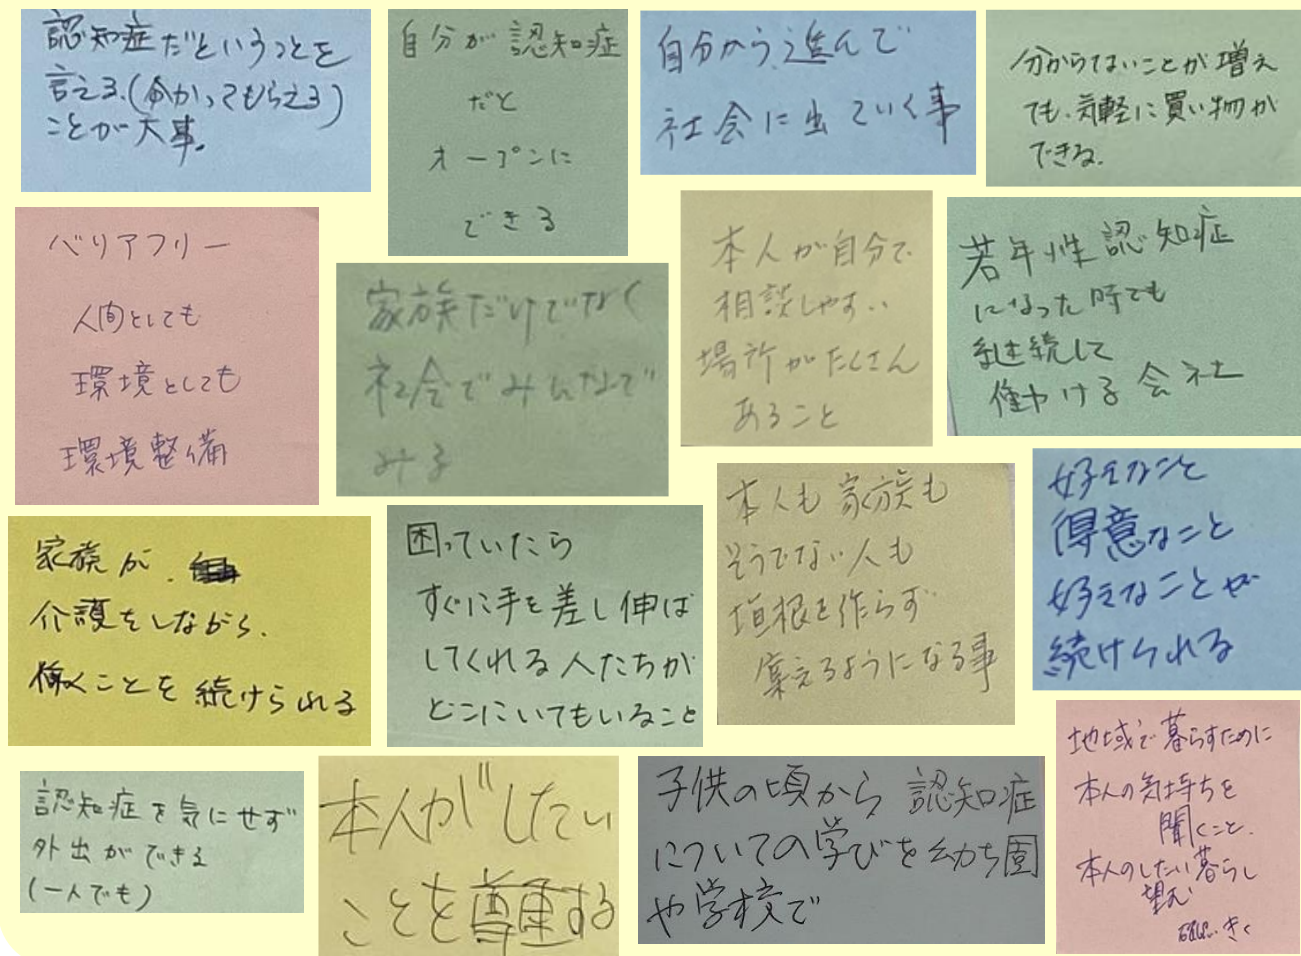 認知症だということを
言える.(分かってもらえる)
ことが大事。
自分が認知症
だと
オープンに
できる
自分から進んで
社会に出ていく事
分からないことが増え
ても、気軽に買い物が
できる.
バリアフリー
人間としても
環境としても
環境整備
家族だけでなく
社会でみんなで
みる
本人が自分で
相談しやすい
場所がたくさん
あること
若年性認知症
になった時でも
継続して
働ける会社
家族が、
介護をしながら、
働くことを続けられる
困っていたら
すぐに手を差し伸ば
してくれる人たちが
どこにいてもいること
本人も家族も
そうでない人も
垣根を作らず
集えるようになる事
好きなこと
得意なこと
好きなことが
続けられる
認知症を気にせず
外出ができる
(一人でも)
本人がしたい
ことを尊重する
子供の頃から認知症
についての学びを幼ち園
や学校で
地域で暮らすために
本人の気持ちを
聞くこと.
本人のしたい暮らし
望む
きく